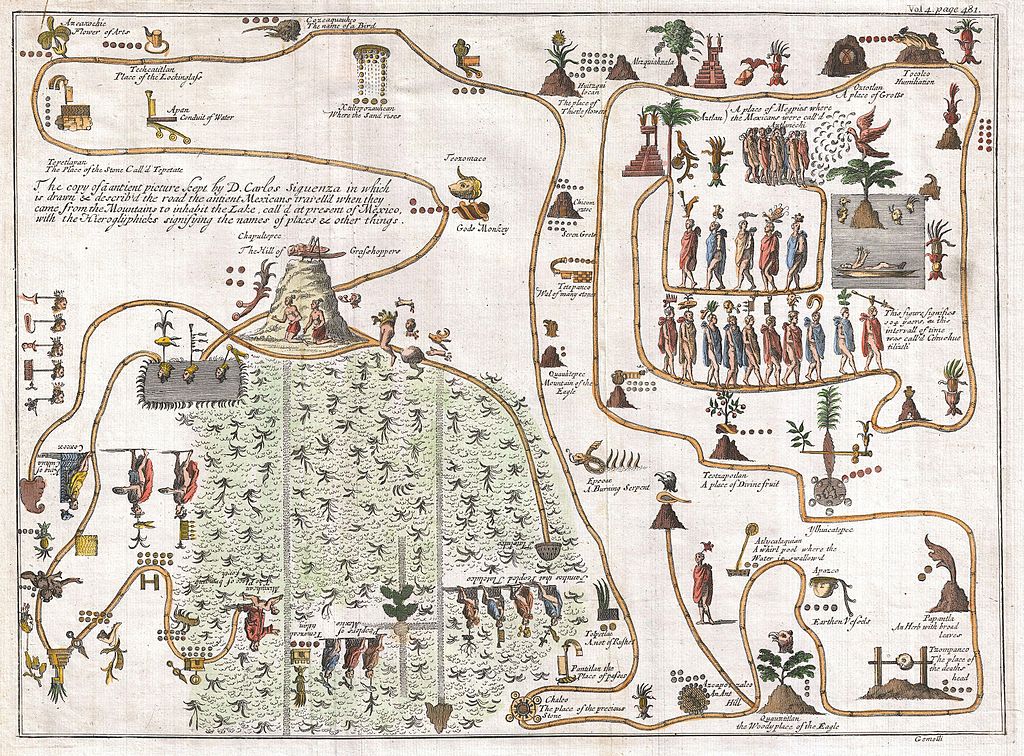 Vol 4. page 481.
Flower of Arts
Cozcaquauhco
The name of a Bird
Techcatitlan
Place of the Lookinglass
Apan
Conduit of Water
Xaltepozauhcan
Where the Sand rises
Tepetlapan
The Place of the Stone Call'd Tepetate
The copy of a antient picture kept by D. Carlos Siguenza in which
is drawn & describ'd the road the antient Mexicans travell'd when they
came from the Mountains to inhabit the Lake, call'd at present of Mexico,
with the Hieroglyphicks signifying the names of places & other things.
Teozomaco
Gods Monkey
Chapultepec
The Hill of Grasshoppers
Huitzqui
locan
The place of
Thistle flowers
Mizquiahuala
Aztlan
A place of Megpies where
the Mexicans were call'd
Oztotlan
A place of Grotts
Tocolco
Humiliation
Chicom
oztoc
Seven Grots
Tetepanco
Wal of many stones
Quauhtepec
Mountain of the
Eagle
This figure signifies
104 years, as this
intervall of time
was call'd
Epcoac
A Burning Serpent
Teotzapotlan
A place of Divine fruit
Ylhuicatepec
Atlicalaquian
A whirl pool where the
Water is swallow'd
Apazco
Earthen Vessels
Papantla
An Herb with broad
leaves
Tzompanco
The place of
the deaths
head
Quauhtitlan
the Woody place of the Eagle
Azcapotzalco
An Ant
Hill
Chalco
The place of the precious
Stone
Pantitlan the
Place of
Tolpetlac
A nest of
Gemelli